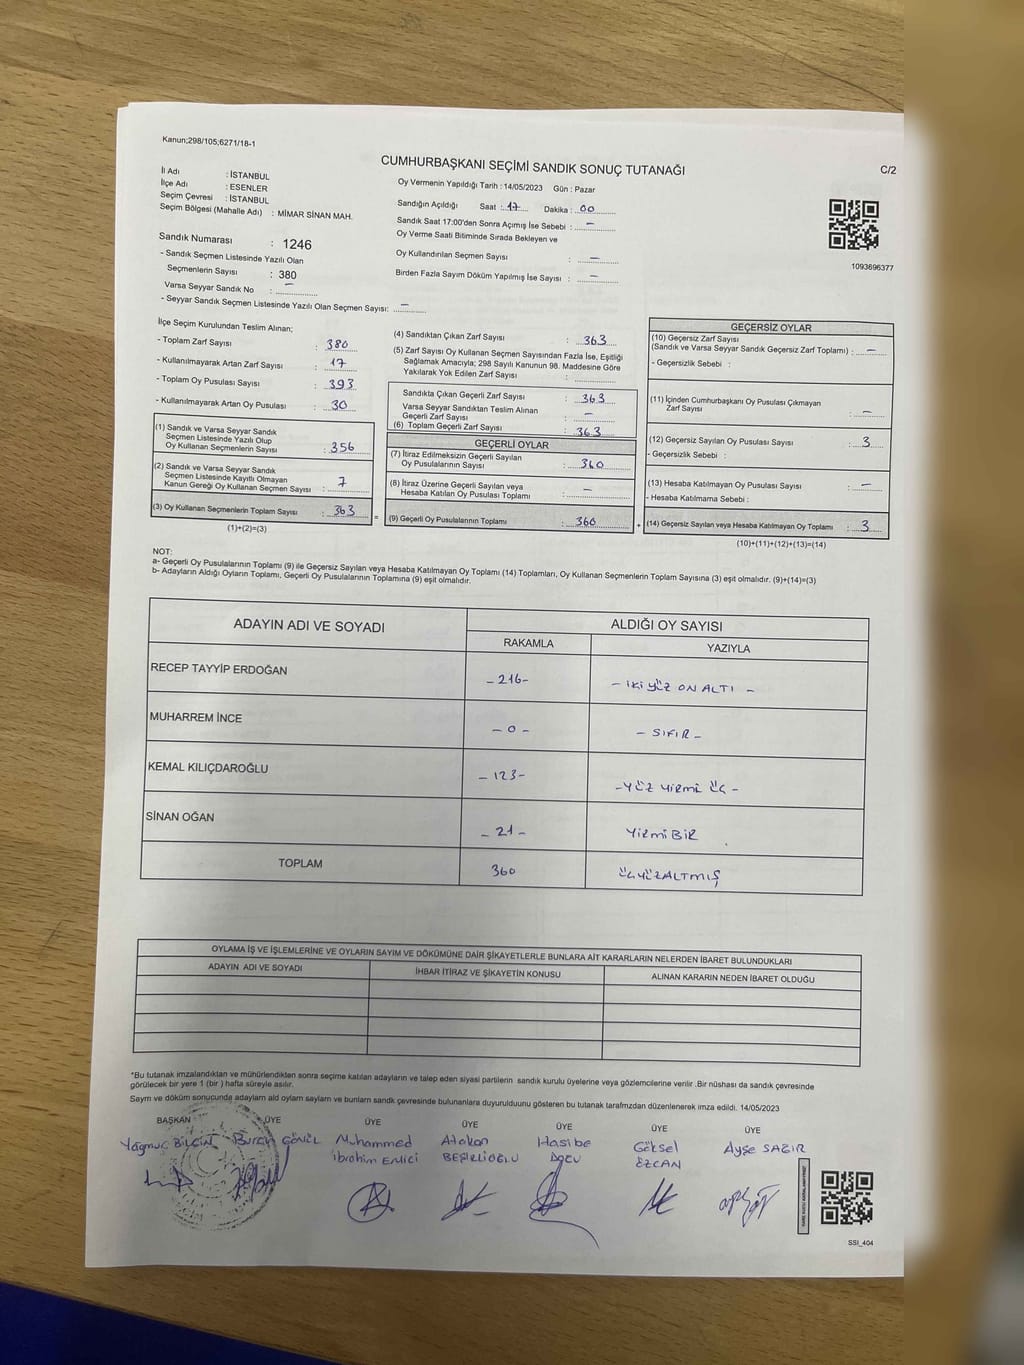 Kanun;298/105;6271/18-1
CUMHURBAŞKANI SEÇİMİ SANDIK SONUÇ TUTANAĞI
C/2
İl Adı : İSTANBUL
İlçe Adı : ESENLER
Seçim Çevresi : İSTANBUL
Seçim Bölgesi (Mahalle Adı) : MİMAR SİNAN MAH.
Oy Vermenin Yapıldığı Tarih : 14/05/2023 Gün : Pazar
Sandığın Açıldığı Saat : 17 Dakika : 00
Sandık Saat 17:00'den Sonra Açımış İse Sebebi : –
Oy Verme Saati Bitiminde Sırada Bekleyen ve
Oy Kullandırılan Seçmen Sayısı : –
Birden Fazla Sayım Döküm Yapılmış İse Sayısı : –
1093696377
Sandık Numarası : 1246
- Sandık Seçmen Listesinde Yazılı Olan
Seçmenlerin Sayısı : 380
Varsa Seyyar Sandık No : –
- Seyyar Sandık Seçmen Listesinde Yazılı Olan Seçmen Sayısı: –
İlçe Seçim Kurulundan Teslim Alınan;
- Toplam Zarf Sayısı : 380
- Kullanılmayarak Artan Zarf Sayısı : 17
- Toplam Oy Pusulası Sayısı : 393
- Kullanılmayarak Artan Oy Pusulası : 30
(1) Sandık ve Varsa Seyyar Sandık
Seçmen Listesinde Yazılı Olup
Oy Kullanan Seçmenlerin Sayısı : 356
(2) Sandık ve Varsa Seyyar Sandık
Seçmen Listesinde Kayıtlı Olmayan
Kanun Gereği Oy Kullanan Seçmen Sayısı : 7
(3) Oy Kullanan Seçmenlerin Toplam Sayısı : 363
(1)+(2)=(3)
=
(4) Sandıktan Çıkan Zarf Sayısı : 363
(5) Zarf Sayısı Oy Kullanan Seçmen Sayısından Fazla İse, Eşitliği
Sağlamak Amacıyla; 298 Sayılı Kanunun 98. Maddesine Göre
Yakılarak Yok Edilen Zarf Sayısı :
Sandıkta Çıkan Geçerli Zarf Sayısı : 363
Varsa Seyyar Sandıktan Teslim Alınan
Geçerli Zarf Sayısı : –
(6) Toplam Geçerli Zarf Sayısı : 363
GEÇERLİ OYLAR
(7) İtiraz Edilmeksizin Geçerli Sayılan
Oy Pusulalarının Sayısı : 360
(8) İtiraz Üzerine Geçerli Sayılan veya
Hesaba Katılan Oy Pusulası Toplamı : –
(9) Geçerli Oy Pusulalarının Toplamı : 360
+
GEÇERSİZ OYLAR
(10) Geçersiz Zarf Sayısı
(Sandık ve Varsa Seyyar Sandık Geçersiz Zarf Toplamı) : –
- Geçersizlik Sebebi :
(11) İçinden Cumhurbaşkanı Oy Pusulası Çıkmayan
Zarf Sayısı : –
(12) Geçersiz Sayılan Oy Pusulası Sayısı : 3
- Geçersizlik Sebebi :
(13) Hesaba Katılmayan Oy Pusulası Sayısı : –
- Hesaba Katılmama Sebebi :
(14) Geçersiz Sayılan veya Hesaba Katılmayan Oy Toplamı : 3
(10)+(11)+(12)+(13)=(14)
NOT:
a- Geçerli Oy Pusulalarının Toplamı (9) ile Geçersiz Sayılan veya Hesaba Katılmayan Oy Toplamı (14) Toplamları, Oy Kullanan Seçmenlerin Toplam Sayısına (3) eşit olmalıdır. (9)+(14)=(3)
b- Adayların Aldığı Oyların Toplamı, Geçerli Oy Pusulalarının Toplamına (9) eşit olmalıdır.
ADAYIN ADI VE SOYADI ALDIĞI OY SAYISI
RAKAMLA YAZIYLA
RECEP TAYYİP ERDOĞAN – 216 – – İKİ YÜZ ON ALTI –
MUHARREM İNCE – 0 – – SIFIR –
KEMAL KILIÇDAROĞLU – 123 – – YÜZ YİRMİ ÜÇ –
SİNAN OĞAN – 21 – YİRMİ BİR
TOPLAM 360 ÜÇYÜZALTMIŞ
OYLAMA İŞ VE İŞLEMLERİNE VE OYLARIN SAYIM VE DÖKÜMÜNE DAİR ŞİKAYETLERLE BUNLARA AİT KARARLARIN NELERDEN İBARET BULUNDUKLARI
ADAYIN ADI VE SOYADI İHBAR İTİRAZ VE ŞİKAYETİN KONUSU ALINAN KARARIN NEDEN İBARET OLDUĞU
*Bu tutanak imzalandıktan ve mühürlendikten sonra seçime katılan adayların ve talep eden siyasi partilerin sandık kurulu üyelerine veya gözlemcilerine verilir .Bir nüshası da sandık çevresinde
görülecek bir yere 1 (bir ) hafta süreyle asılır.
Sayım ve döküm sonucunda adayların ald oylam sayların ve bunların sandk çevresinde bulunanlara duyurulduunu gösteren bu tutanak tarafmzdan düzenlenerek imza edildi. 14/05/2023
BAŞKAN ÜYE ÜYE ÜYE ÜYE ÜYE ÜYE
Yağmur BİLGİN Burcu GÖNÜL Muhammed Atakan Hasibe Göksel Ayşe SAĞIR
İbrahim BEŞİRLİOĞLU ÖZCAN
SSI_404